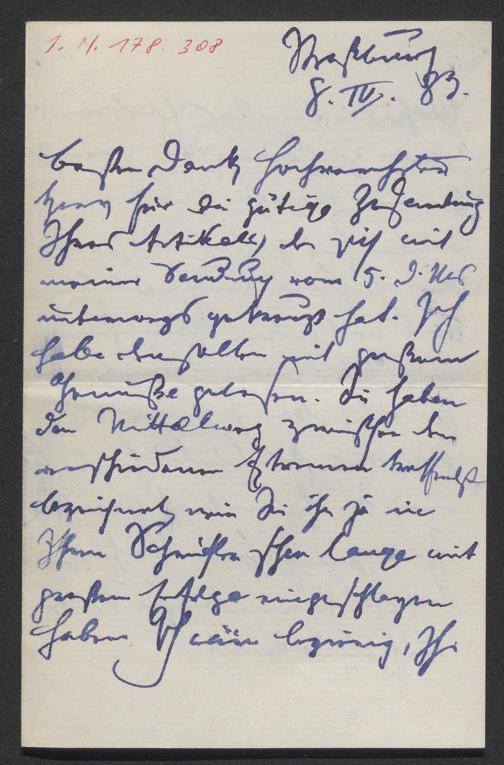 I. N. 178.308
Straßburg
8. IV. 83.
besten Dank hochverehrter
Herr für die gütige Zusendung
Ihres Artikels, der sich mit
meiner Sendung vom 5. d. Mts
unterwegs gekreuzt hat. Ich
habe denselben mit großem
Genuße gelesen. Sie haben
den Mittelweg zwischen den
verschiedenen Extremen treffendst
bezeichnet, wie Sie ihn ja in
Ihren Schriften schon lange mit
großem Erfolge eingeschlagen
haben. Ich wäre begierig, Ihr